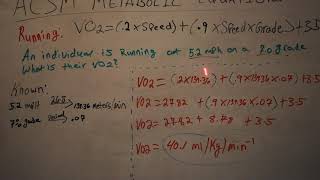 ACSM METABOLIC EQUATIONS
Running: VO2=(.2 x Speed) + (.9 x Speed x Grade) + 3.5
An individual is Running at 5.2 mph on a 7% grade
What is their VO2?
Known:
5.2 mph 26.8 139.36 meters/min
7% grade .07
VO2= (.2 x 139.36) + (.9 x 139.36 x .07) + 3.5
VO2= 27.82 + (.9 x 139.36 x .07) + 3.5
VO2= 27.82 + 8.78 + 3.5
VO2= 40.1 ml/Kg/min-1